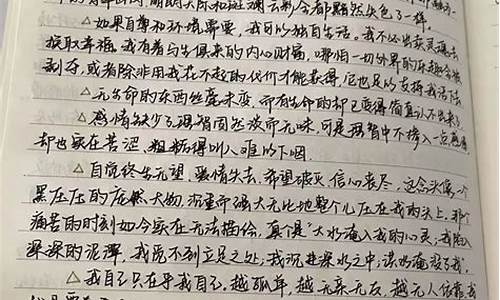 △如果自尊和环境需要，我可以独自生活。我不必出卖灵魂去
换取幸福。我有着与生俱来的内心财富，哪怕一切外界的乐趣会被
剥夺，或者除非用我付不起的代价才能获得，它也足以支持我活下去
△无生命的东西丝毫未变，而有生命的却已变得简直认不出来了
△感情缺少了理智固然淡而无味，可是理智中不掺入一点感情
却也实在苦涩、粗糙得叫人难以下咽
△自觉终生无望，爱情失去，希望破灭，信心丧尽，这念头像一个
黑压压的庞然大物，沉重而强大无比地整个儿压在我的头上，那个
痛苦的时刻如今实在无法描绘，真个是"大水淹入我的心灵，我陷入
深深的泥潭，我觉不到立足之处；我沉进深水之中；洪水淹没了我"
△我自己只在乎我自己，越孤单，越无亲无友，越无人依靠